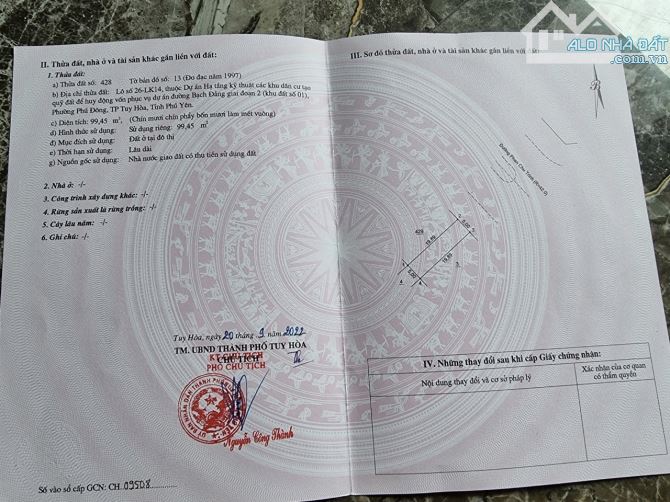 ALO NHÀ ĐẤT
II. Thửa đất, nhà ở và tài sản khác gắn liền với đất:
1. Thửa đất:
a) Thửa đất số: 428 Tờ bản đồ số: 13 (Đo đạc năm 1997)
b) Địa chỉ thửa đất: Lô số 26-LK14, thuộc Dự án Hạ tầng kỹ thuật các khu dân cư tạo
quỹ đất để huy động vốn phục vụ dự án đường Bạch Đằng giai đoạn 2 (khu đất số 01),
Phường Phú Đông, TP Tuy Hòa, Tỉnh Phú Yên.
c) Diện tích: 99,45 m², (Chín mươi chín phẩy bốn mươi lăm mét vuông)
d) Hình thức sử dụng: Sử dụng riêng: 99,45 m²
đ) Mục đích sử dụng: Đất ở tại đô thị
e) Thời hạn sử dụng: Lâu dài
g) Nguồn gốc sử dụng: Nhà nước giao đất có thu tiền sử dụng đất
2. Nhà ở: -/-
3. Công trình xây dựng khác: -/-
4. Rừng sản xuất là rừng trồng: -/-
5. Cây lâu năm: -/-
6. Ghi chú: -/-
Tuy Hòa, ngày 20 tháng 9 năm 2022
TM. UBND THÀNH PHỐ TUY HÒA
CHỦ TỊCH
KT. CHỦ TỊCH
PHÓ CHỦ TỊCH
Nguyễn Công Thành
Số vào sổ cấp GCN: CH 09508
III. Sơ đồ thửa đất, nhà ở và tài sản khác gắn liền với đất
Đường Phan Chu Trinh
428
1
2
5,00
19,89
19,89
5,00
3
4
IV. Những thay đổi sau khi cấp Giấy chứng nhận:
Nội dung thay đổi và cơ sở pháp lý
Xác nhận của cơ quan
có thẩm quyền